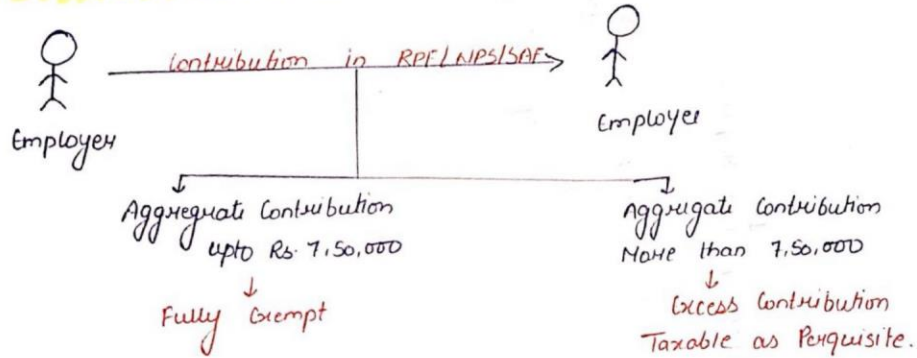 Contribution in RPF/NPS/SAF
Employer
Employee
Aggregate Contribution
upto Rs. 7,50,000
Fully Exempt
Aggregate Contribution
More than 7,50,000
Excess Contribution
Taxable as Perquisite.